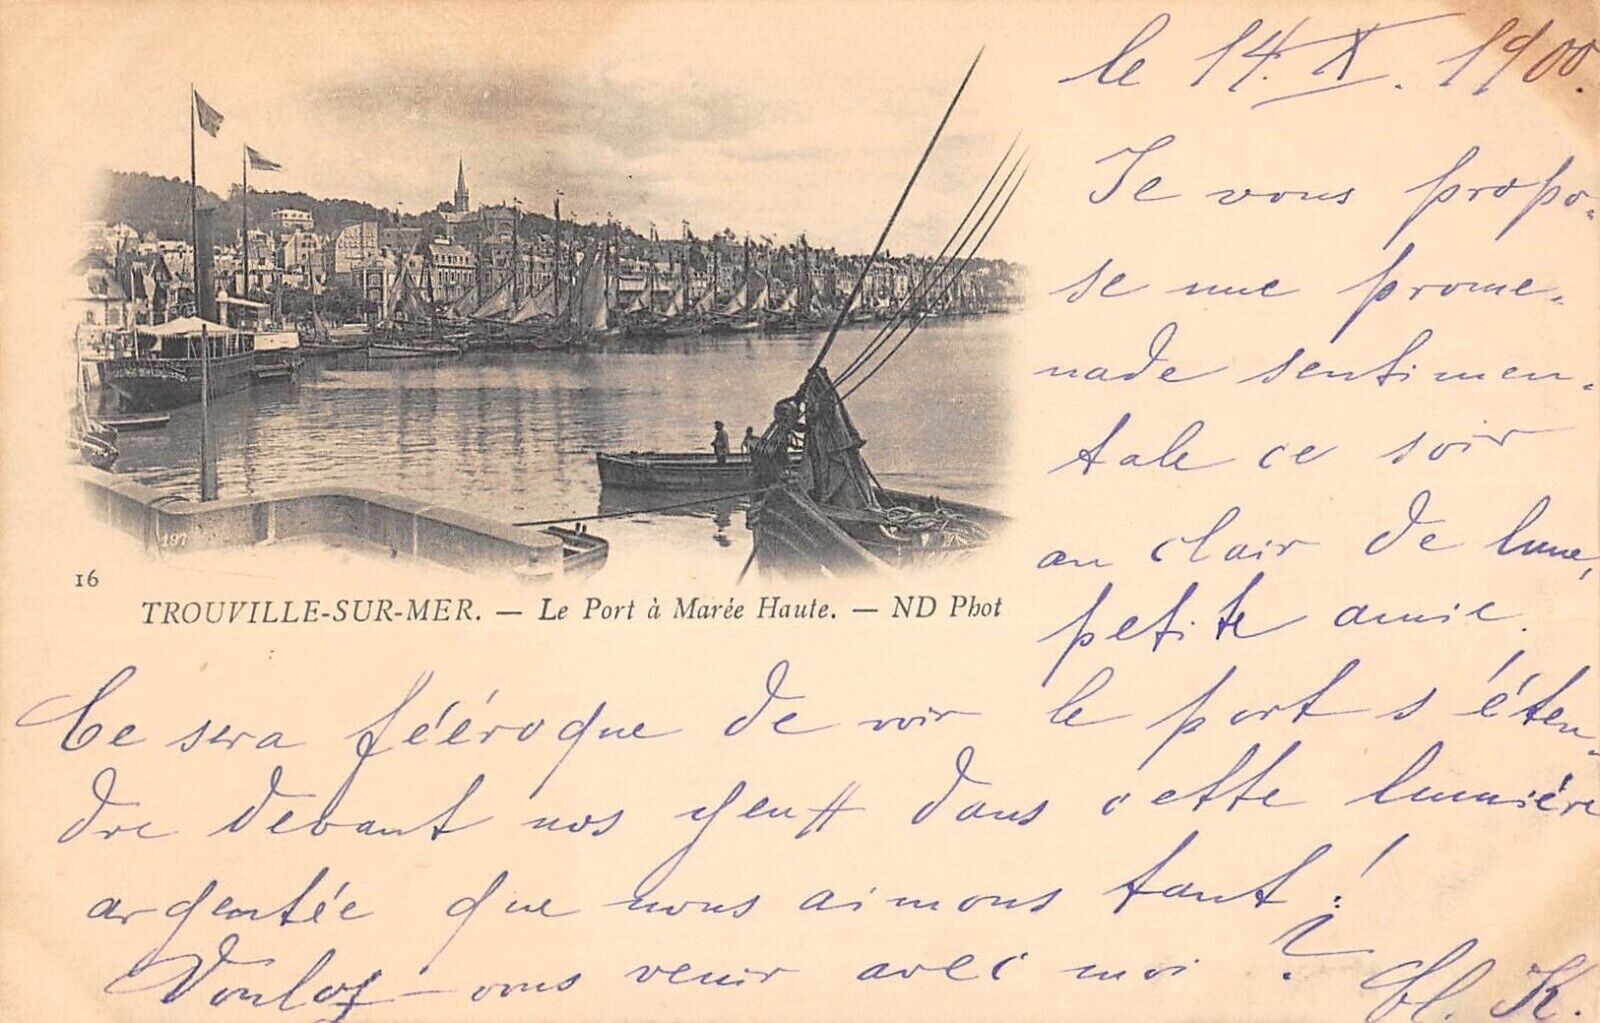 le 14. X. 1900.
Je vous propo-
se une prome-
nade sentimen-
tale ce soir
au clair de lune,
petite amie.
197
16
TROUVILLE-SUR-MER. — Le Port à Marée Haute. — ND Phot
Ce sera féérique de voir le port s'éten-
dre devant nos yeux dans cette lumière
argentée que nous aimons tant !
Voulez-vous venir avec moi ?
K.